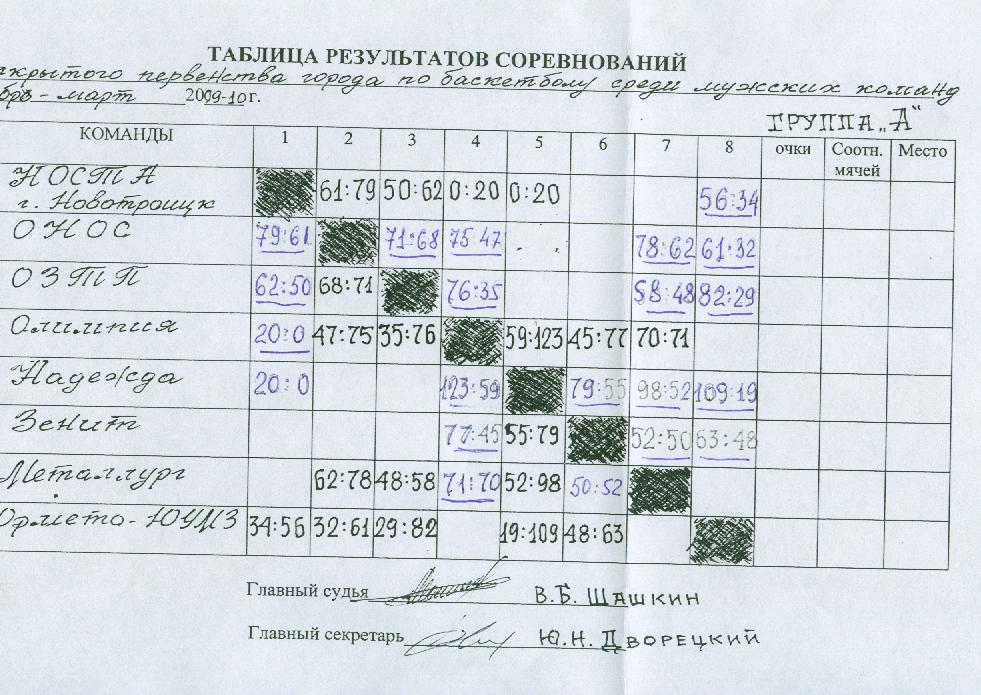 ТАБЛИЦА РЕЗУЛЬТАТОВ СОРЕВНОВАНИЙ
первенства города по баскетболу среди мужских команд
- март 2009-10 г.
ГРУППА „А“
КОМАНДЫ 1 2 3 4 5 6 7 8 очки Соотн. мячей Место
НОСТА г. Новотроицк 61:79 50:62 0:20 0:20 56:34
ОНОС 79:61 71:68 75:47 78:62 61:32
ОЗТП 62:50 68:71 76:35 58:48 82:29
Олимпия 20:0 47:75 35:76 59:123 45:77 70:71
Надежда 20:0 123:59 79:55 98:52 109:19
Зенит 77:45 55:79 52:50 63:48
Металлург 62:78 48:58 71:70 52:98 50:52
Ормето-ЮУМЗ 34:56 32:61 29:82 19:109 48:63
Главный судья В.Б. ШАШКИН
Главный секретарь Ю.Н. ДВОРЕЦКИЙ